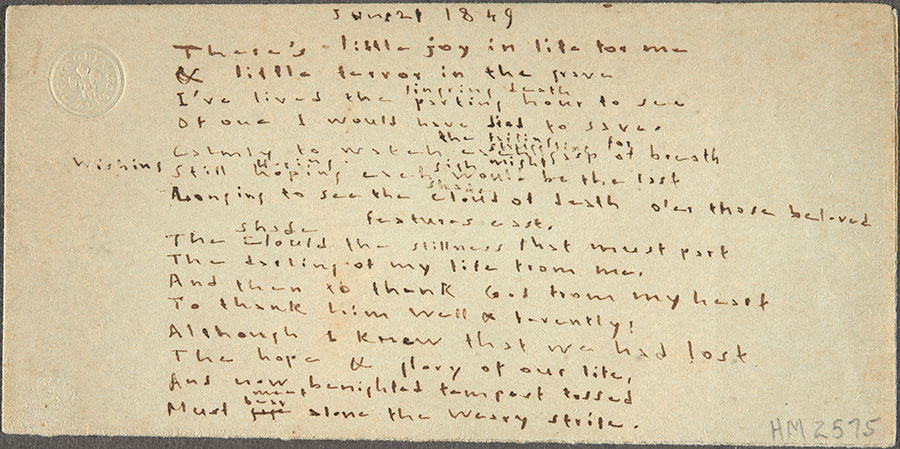 June 21 1849
There's little joy in life for me
& little terror in the grave
lingring death
I've lived the parting hour to see
Of one I would have died to save.
the failing for
Calmly to watch the gasp of breath
Wishing hoping sigh might
Still hoping each would be the last
shade
Longing to see the cloud of death o'er those beloved
features cast.
shade
The cloud the stillness that must part
The darling of my life from me.
And then to thank God from my heart
To thank him well & fervently;
Although I knew that we had lost
The hope & glory of our life,
And now, benighted tempest tossed
bear
Must alone the weary strife.
HM 2575